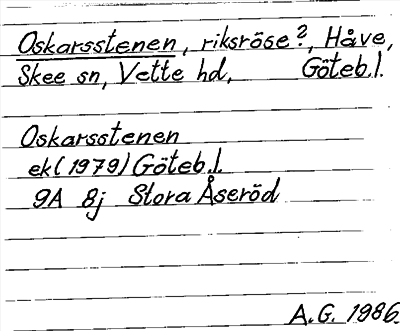 Oskarsstenen, riksröse?, Håve,
Skee sn, Vette hd, Göteb.l.
Oskarsstenen
ek(1979) Göteb.l.
9A 8j Stora Åseröd
A.G. 1986.